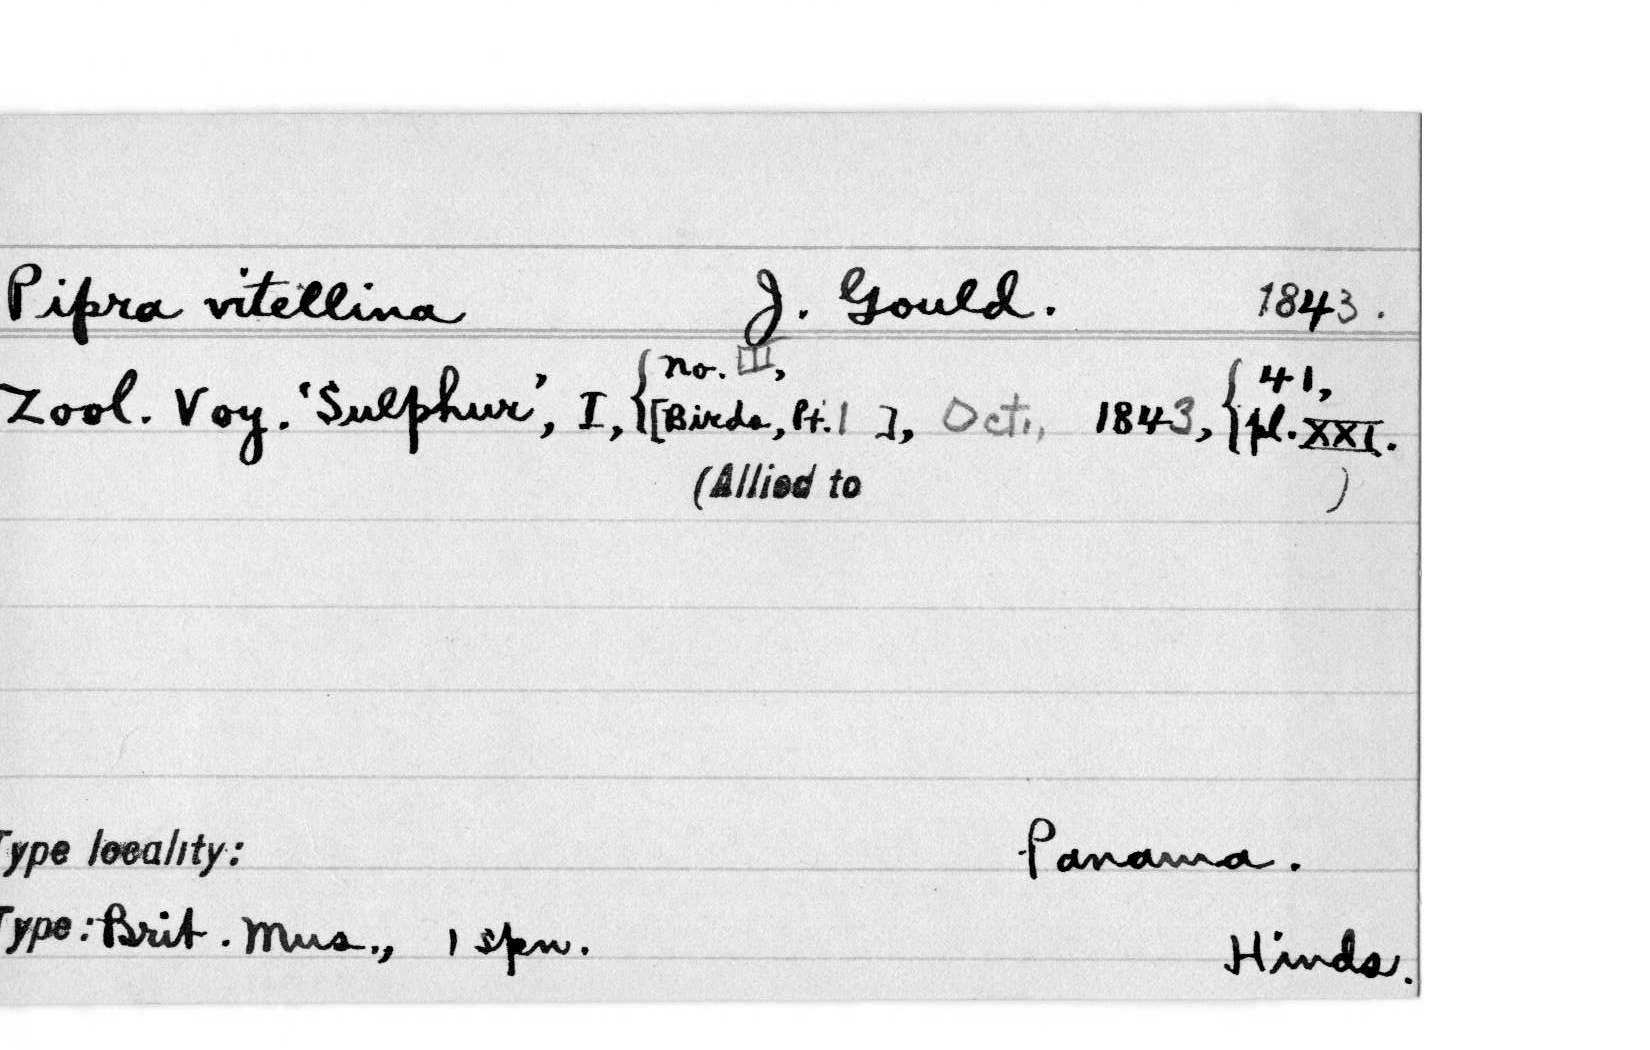 Pipra vitellina J. Gould. 1843.
Zool. Voy. 'Sulphur', I, { No. III, [Birds, Pt. 1 ], Oct., 1843, { 41, pl. XXI.
(Allied to )
Type locality: Panama.
Type: Brit. Mus., 1 spn. Hinds.